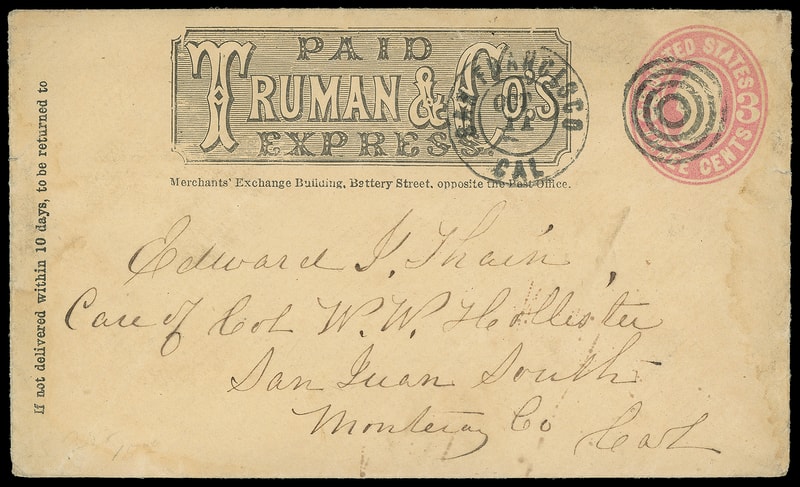 PAID
TRUMAN & CO'S
EXPRESS
Merchants' Exchange Building, Battery Street, opposite the Post Office.
If not delivered within 10 days, to be returned to
SAN FRANCISCO
OCT
11
CAL
UNITED STATES
3
THREE CENTS
Edward J. Thain
Care of Col W. W. Hollister
San Juan South
Monterey Co
Cal